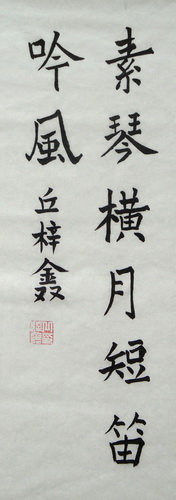 素琴橫月短笛
吟風丘梓鑫